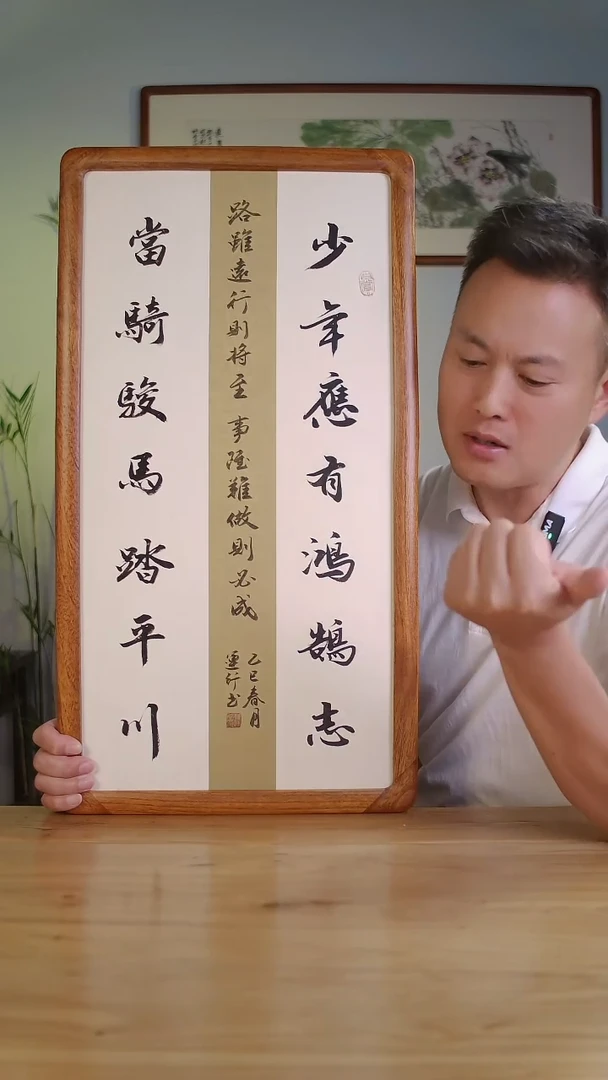 少年應有鴻鵠志
路雖遠行則將至 事雖難做則必成
乙巳春月
運行書
當騎駿馬踏平川